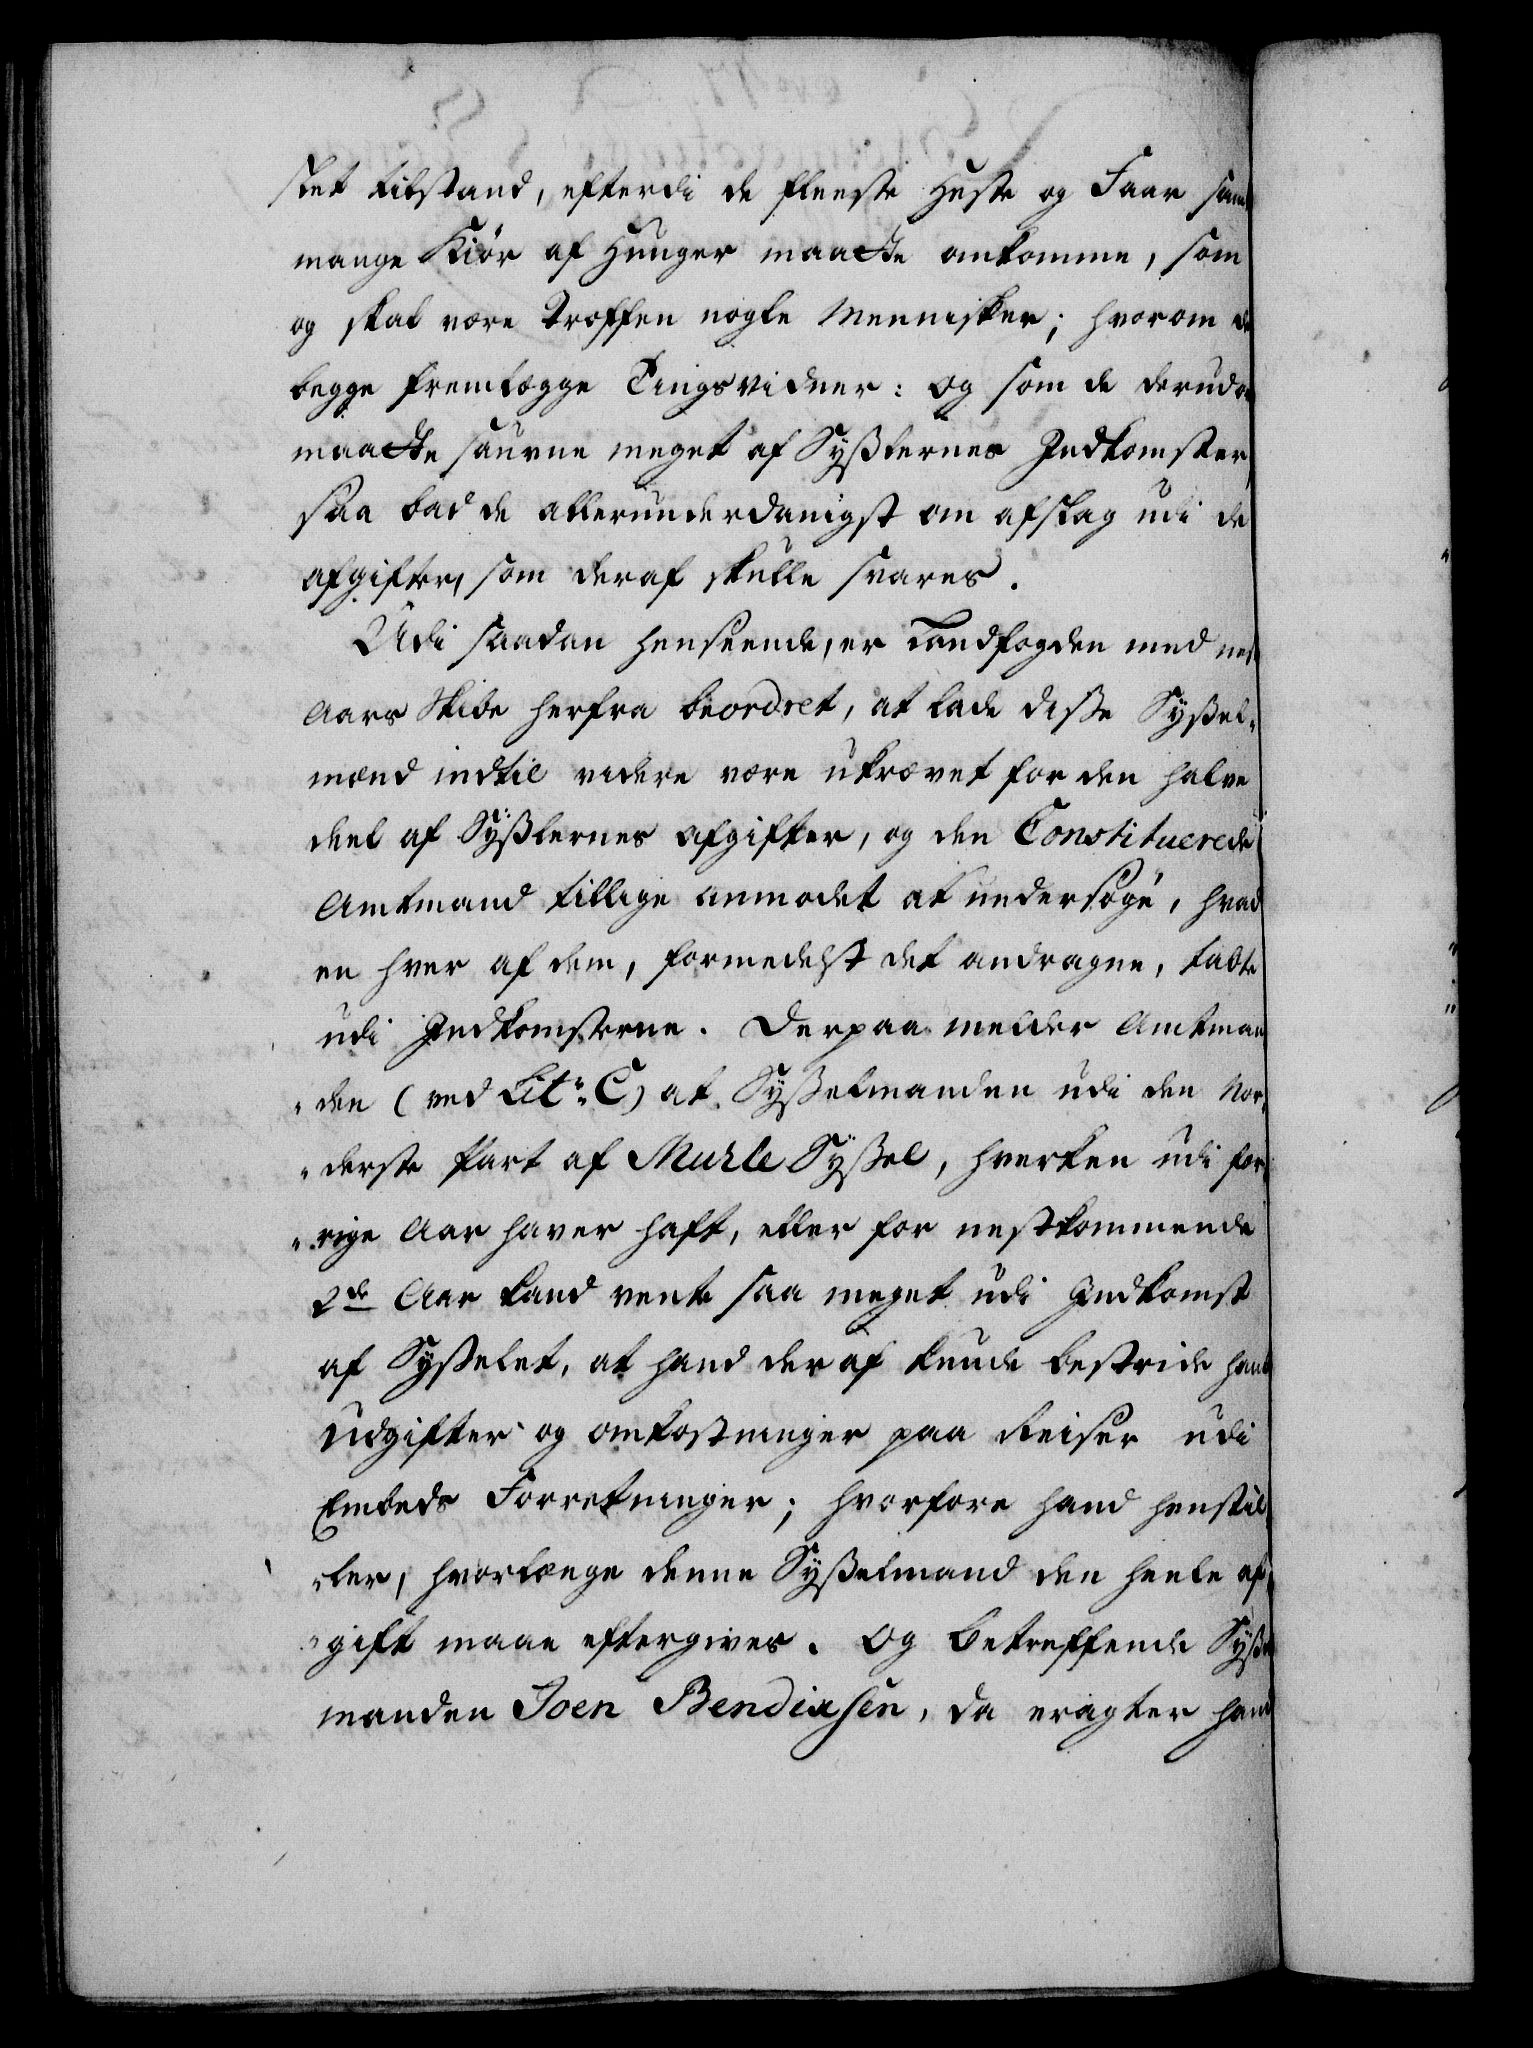 slet tilstand, efterdi de fleeste Heste og Faar samt
mange Kiør af Hunger maatte omkomme, som
og skal være Troffen nogle Mennisker; hvorom de
begge fremlægge Tingsvidner: og som de derudover
maatte saufne meget af Syßlernes Indkomster,
saa bad de allerunderdanigst om afslag udi de
afgifter, som deraf skulle svares.
Udi saadan henseende, er Landfogden med
Aars Skibe herfra beordret, at lade diße Syßel-
mænd indtil videre være ukrævet for den halve
deel af Syßlernes afgifter, og den Constituerede
Amtmand tillige anmodet at undersøge, hvad
en hver af dem, formedelst det andragne, tabte
udi Indkomsterne. Derpaa melder Amtman-
„den (ved Litr. C) at Syßelmanden udi den Nor-
„derste Part af Muhle Syßel, hverken udi for-
„rige Aar haver haft, eller for nestkommende
2de Aar kand vente saa meget udi Indkomst
af Syßelet, at hand deraf kunde bestride hans
Udgifter og omkostninger paa Reiser udi
Embeds Forretninger; hvorfore hand henstil-
„ler, hvorlænge denne Syßelmand den heele af-
„gift maae eftergives. Og betreffende Syßel
manden Joen Bendixsen, da eragter hand